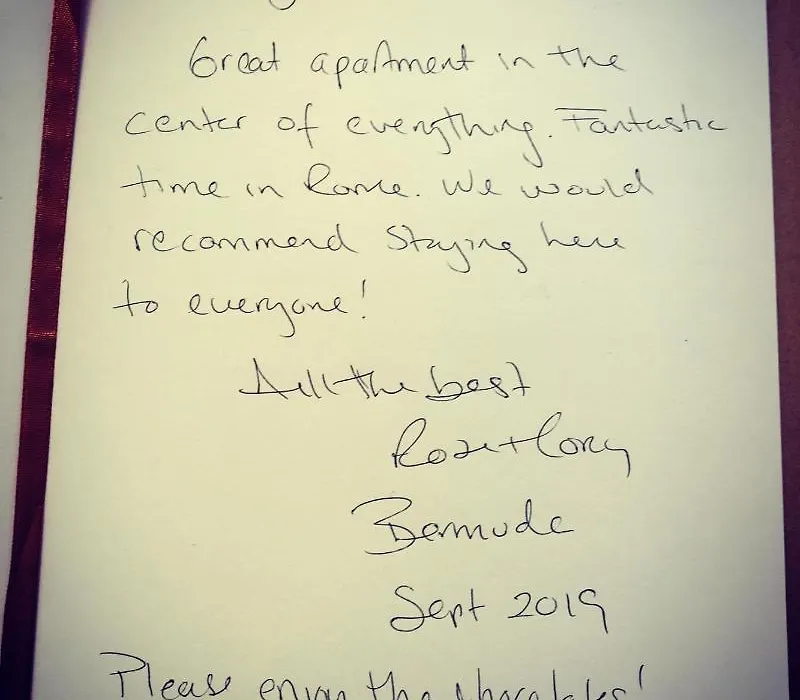 Great apartment in the
center of everything. Fantastic
time in Rome. We would
recommend staying here
to everyone!
All the best
Rose + Cory
Bermuda
Sept 2019
Please enjoy the chocolates!